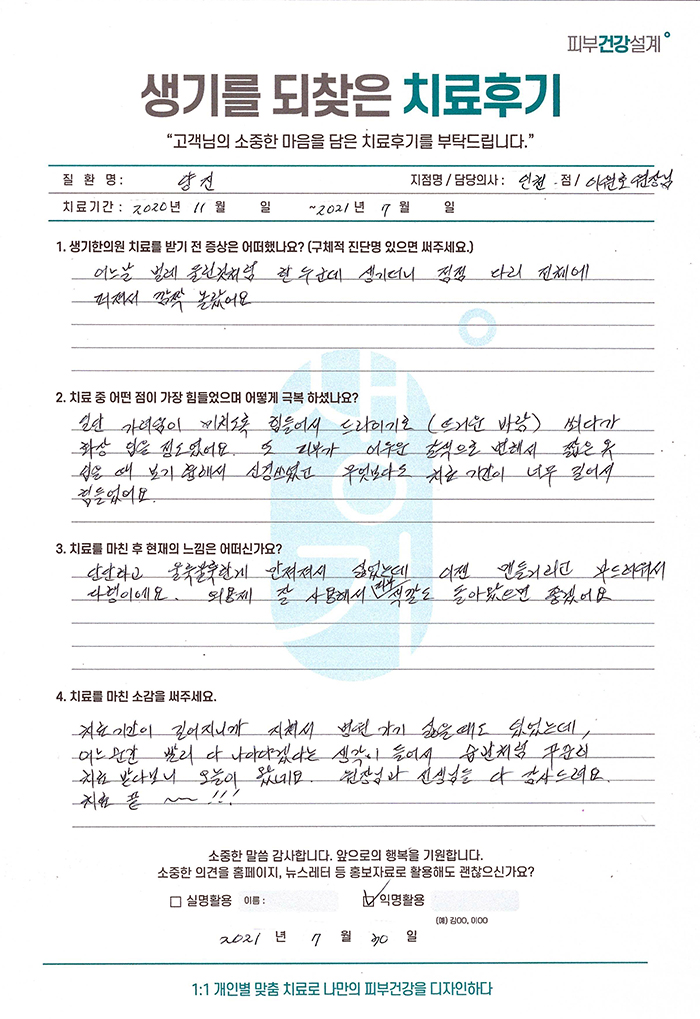 피부건강설계
생기를 되찾은 치료후기
“고객님의 소중한 마음을 담은 치료후기를 부탁드립니다.”
질 환 명 : 양진 지점명 / 담당의사 : 인천 점 / 이원호 원장님
치료기간 : 2020 년 11 월 일 ~2021 년 7 월 일
1. 생기한의원 치료를 받기 전 증상은 어떠했나요? (구체적 진단명 있으면 써주세요.)
어느날 벌레 물린것처럼 한 두군데 생기더니 점점 다리 전체에
퍼져서 깜짝 놀랐어요
2. 치료 중 어떤 점이 가장 힘들었으며 어떻게 극복 하셨나요?
일단 가려움이 미치도록 힘들어서 드라이기로 (뜨거운 바람) 쐬다가
화상 입을 정도였어요. 또 피부가 어두운 갈색으로 변해서 짧은 옷
입을 때 보기 흉해서 신경쓰였고 무엇보다도 치료 기간이 너무 길어서
힘들었어요.
3. 치료를 마친 후 현재의 느낌은 어떠신가요?
단단하고 울룩불룩한게 만져져서 싫었는데 이젠 맨들거리고 부드러워서
다행이에요. 외용제 잘 사용해서 피부 색깔도 돌아왔으면 좋겠어요
4. 치료를 마친 소감을 써주세요.
치료기간이 길어지니까 지쳐서 병원 가기 싫을때도 있었는데,
어느순간 빨리 다 나아야겠다는 생각이 들어서 습관처럼 꾸준히
치료 받다보니 오늘이 왔네요. 원장님과 선생님들 다 감사드려요.
치료 끝 ~~ !!!
생기
소중한 말씀 감사합니다. 앞으로의 행복을 기원합니다.
소중한 의견을 홈페이지, 뉴스레터 등 홍보자료로 활용해도 괜찮으신가요?
실명활용 이름 : 익명활용
(예) 김OO, 이OO
2021 년 7 월 30 일
1:1 개인별 맞춤 치료로 나만의 피부건강을 디자인하다